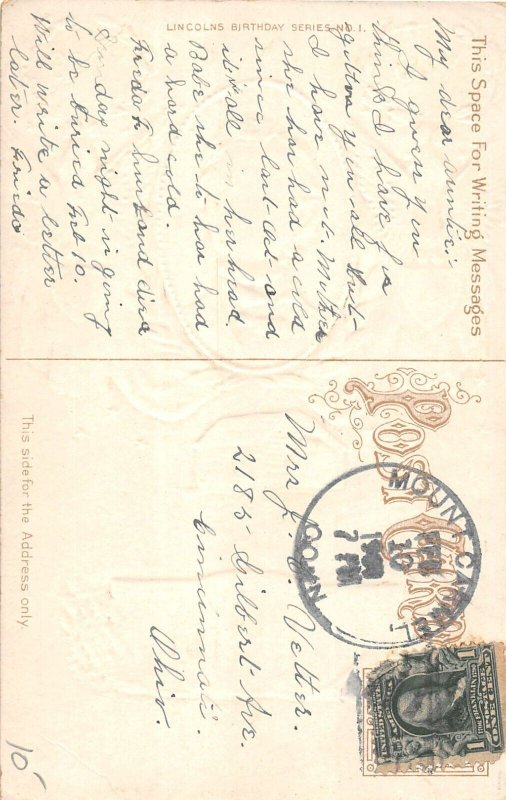 LINCOLNS BIRTHDAY SERIES NO. 1.
This Space For Writing Messages
My dear auntie:-
I guess you
think I have for
gotten you all but
I have not. Mother
she has had a cold
since last and
is all in her head.
Babe she to has had
a hard cold.
Frieda F husband died
Sunday night is going
to be buried Feb 10.
Will write a letter
later. Frieda
Post Card
MOUNT CARMEL
FEB
10
7 PM
CONN.
UNITED STATES
1 1
Mrs J. C. Vetter.
2185 Gilbert Ave.
Cincinnati.
Ohio.
This side for the Address only.
10